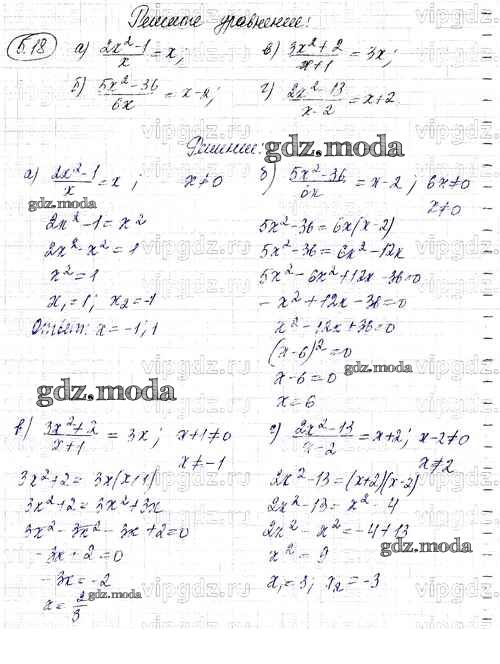 Решите уравнение:
5.18 а) (2x²-1)/x = x; в) (3x²+2)/(x+1) = 3x;
б) (5x²-36)/(6x) = x-2; г) (2x²-13)/(x-2) = x+2.
Решение:
gdz.moda
а) (2x²-1)/x = x; x≠0
gdz.moda
2x²-1=x²
2x²-x²=1
x²=1
x₁=1; x₂=-1
Ответ: x=-1; 1
б) (5x²-36)/(6x) = x-2; 6x≠0
x≠0
5x²-36=6x(x-2)
5x²-36=6x²-12x
5x²-6x²+12x-36=0
-x²+12x-36=0
x²-12x+36=0
(x-6)²=0
x-6=0
x=6
gdz.moda
gdz.moda
в) (3x²+2)/(x+1) = 3x; x+1≠0
x≠-1
3x²+2=3x(x+1)
3x²+2=3x²+3x
3x²-3x²-3x+2=0
-3x+2=0
-3x=-2
x=2/3
gdz.moda
г) (2x²-13)/(x-2) = x+2; x-2≠0
x≠2
2x²-13=(x+2)(x-2)
2x²-13=x²-4
2x²-x²=-4+13
x²=9
gdz.moda
x₁=3; x₂=-3
vipgdz.ru